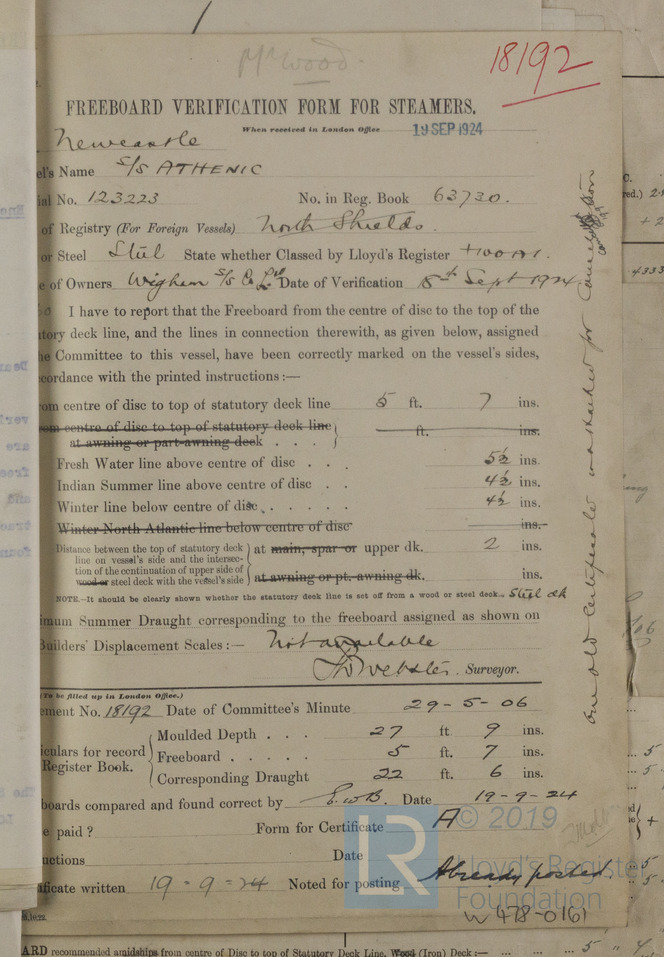 Mr Wood.
18192
FREEBOARD VERIFICATION FORM FOR STEAMERS.
When received in London Office 19 SEP 1924
Newcastle
el's Name S/S ATHENIC
ial No. 123223 No. in Reg. Book 63730.
of Registry (For Foreign Vessels) North Shields.
or Steel Steel State whether Classed by Lloyd's Register +100A1.
e of Owners Wigham S/S Co Ltd Date of Verification 8th Sept 1924
I have to report that the Freeboard from the centre of disc to the top of the
tory deck line, and the lines in connection therewith, as given below, assigned
he Committee to this vessel, have been correctly marked on the vessel's sides,
cordance with the printed instructions:—
om centre of disc to top of statutory deck line 5 ft. 7 ins.
om centre of disc to top of statutory deck line
at awning or part-awning deck . . . ft. ins.
Fresh Water line above centre of disc . . . 5½ ins.
Indian Summer line above centre of disc . . 4½ ins.
Winter line below centre of disc . . . . . 4½ ins.
Winter North Atlantic line below centre of disc ins.
Distance between the top of statutory deck
line on vessel's side and the intersec-
tion of the continuation of upper side of
wood or steel deck with the vessel's side
at main, spar or upper dk. 2 ins.
at awning or pt. awning dk. ins.
NOTE.—It should be clearly shown whether the statutory deck line is set off from a wood or steel deck. Steel dk
imum Summer Draught corresponding to the freeboard assigned as shown on
Builders' Displacement Scales:— Not available
Webster. Surveyor.
(To be filled up in London Office.)
ement No. 18192 Date of Committee's Minute 29-5-06
iculars for record
Register Book.
Moulded Depth . . . 27 ft. 9 ins.
Freeboard . . . . . 5 ft. 7 ins.
Corresponding Draught 22 ft. 6 ins.
boards compared and found correct by E.W.B. Date 19-9-24
e paid? Form for Certificate A
uctions Date
ificate written 19-9-24 Noted for posting Already posted.
W478-0161
© 2019
LR
Lloyd's Register
Foundation
one old Certificate attached for Cancellation
ARD recommended amidships from centre of Disc to top of Statutory Deck Line, Wood (Iron) Deck:— 5 4
4333